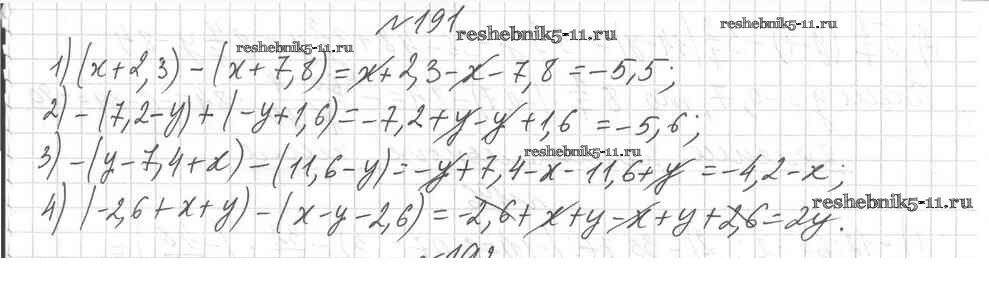 №191
reshebnik5-11.ru
reshebnik5-11.ru
reshebnik5-11.ru
1) (x+2,3) - (x+7,8) = x+2,3-x-7,8 = -5,5;
2) -(7,2-y) + (-y+1,6) = -7,2+y-y+1,6 = -5,6;
reshebnik5-11.ru
3) -(y-7,4+x) - (11,6-y) = -y+7,4-x-11,6+y = -4,2-x;
reshebnik5-11.ru
4) (-2,6+x+y) - (x-y-2,6) = -2,6+x+y-x+y+2,6 = 2y.